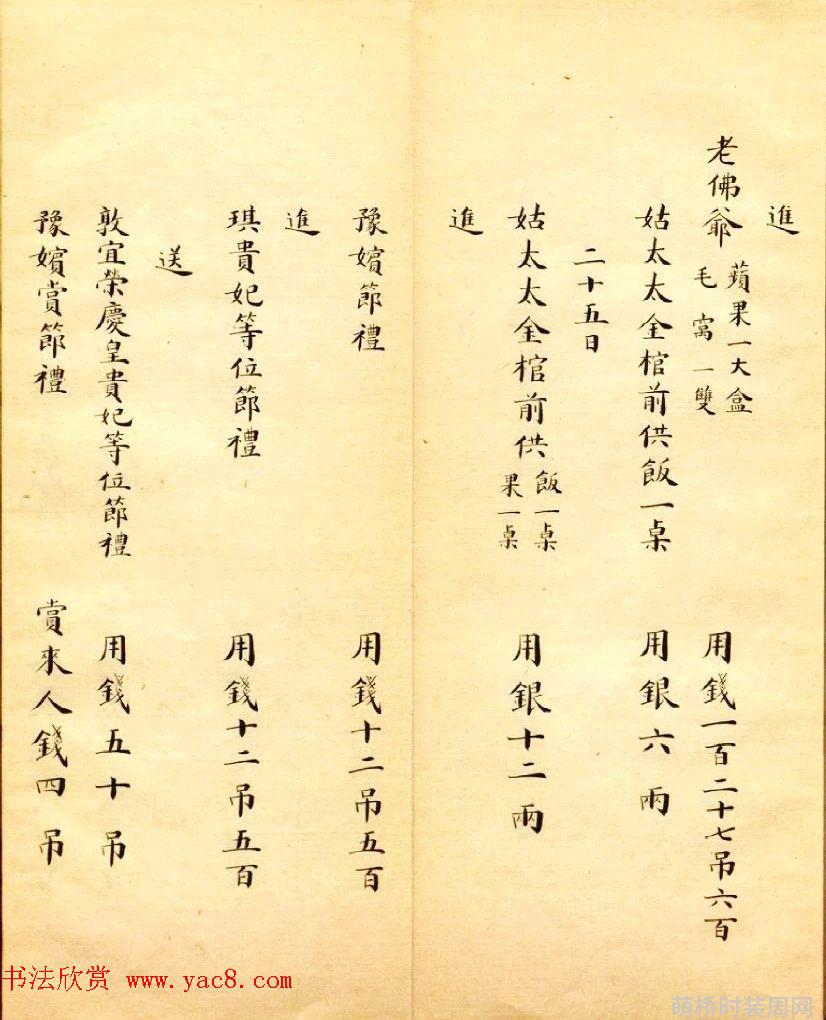 進
老佛爺 蘋果一大盒 毛窩一雙 用錢一百二十七吊六百
姑太太金棺前供飯一桌 用銀六兩
二十五日
姑太太金棺前供飯一桌 果一桌 用銀十二兩
進
豫嬪節禮 用錢十二吊五百
進
琪貴妃等位節禮 用錢十二吊五百
送
敦宜榮慶皇貴妃等位節禮 用錢五十吊
豫嬪賞節禮 賞來人錢四吊
书法欣赏 www.yac8.com
萌桥时装周网